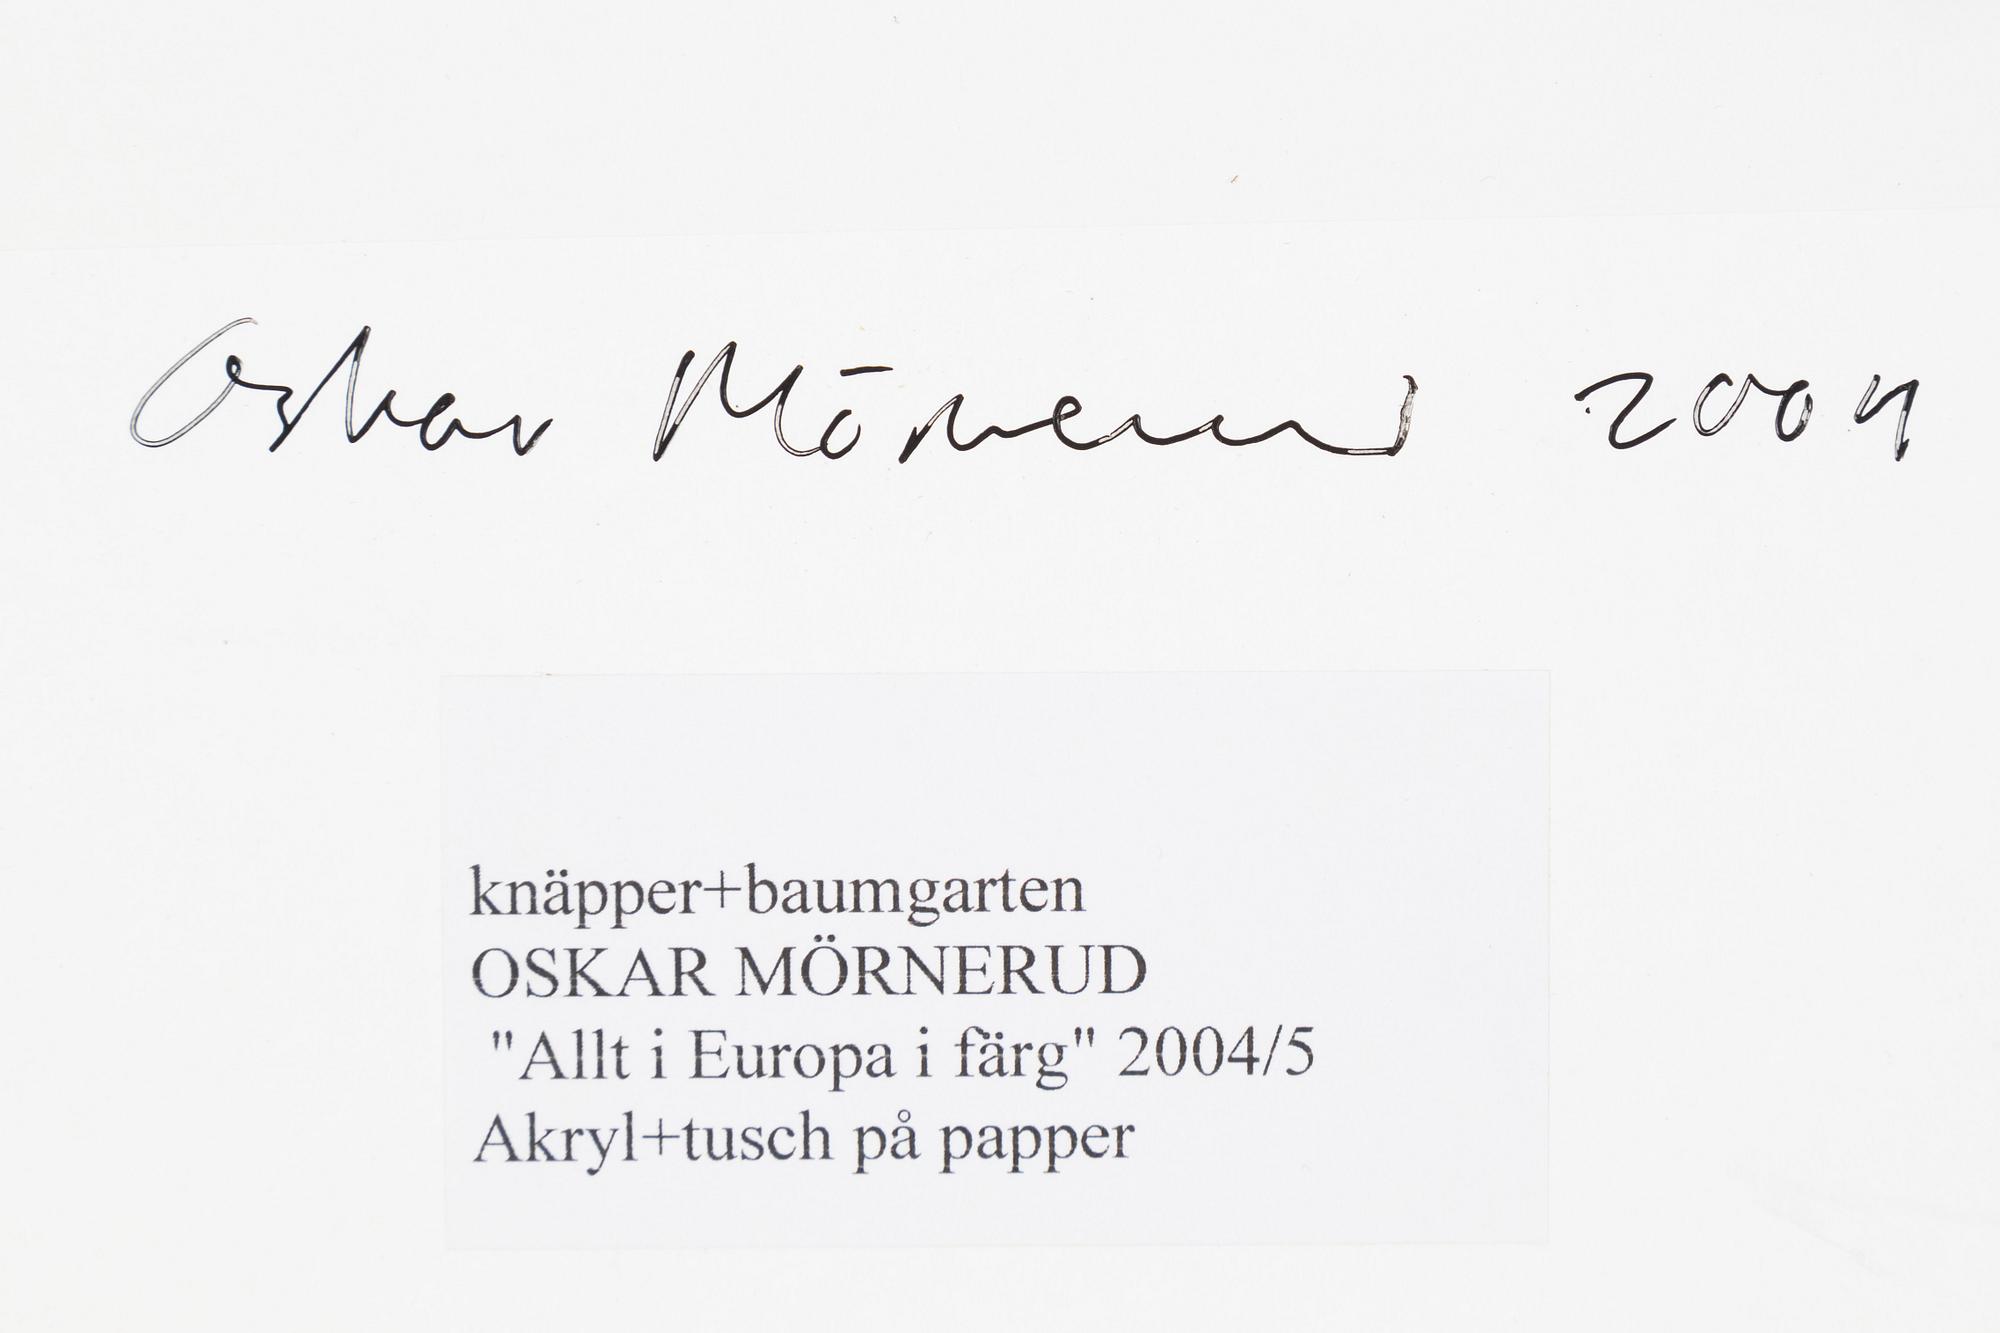 Oskar Mörnerud 2004
knäpper+baumgarten
OSKAR MÖRNERUD
"Allt i Europa i färg" 2004/5
Akryl+tusch på papper